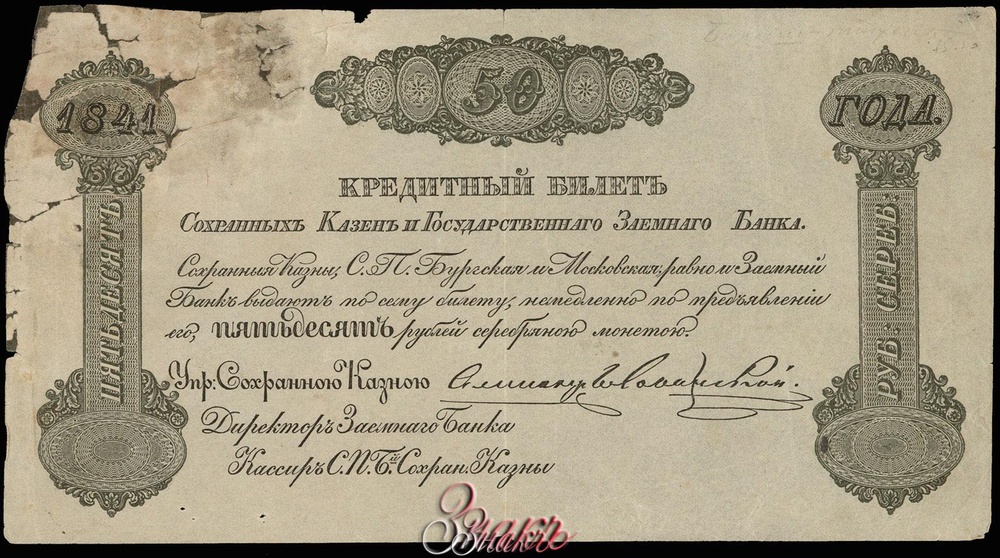 50
1841 ГОДА.
КРЕДИТНЫЙ БИЛЕТЪ
СОХРАННЫХЪ КАЗЕНЪ И ГОСУДАРСТВЕННАГО ЗАЕМНАГО БАНКА.
Сохранныя Казны, С. П. Бургская и Московская; равно и Заемный
Банкъ выдаютъ по сему билету, немедленно по предъявленіи
его, пятьдесятъ рублей серебряною монетою.
Упр: Сохранною Казною
Директоръ Заемнаго Банка
Кассиръ С. П. Б.й Сохран. Казны
ПЯТЬДЕСЯТЪ
РУБ: СЕРЕБ:
Знакъ